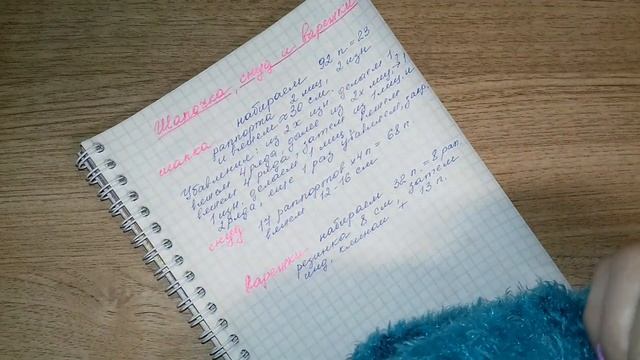 Шапочка, снуд и варежки
шапка набираем 92 п = 23
раппорта 2 лиц, 2 изн
и вяжем ≈ 30 см.
Убавление: из 2х изн делаем 1,
вяжем 4 ряда, далее из 2х лиц → 1
вяжем 4 ряда, затем из 1 лиц и
1 изн. делаем 1 лиц вяжем
2 ряда и еще 1 раз убавляем, закр.
снуд 17 раппортов х4п = 68 п
вяжем 12-16 см
варежки набираем 32 п = 8 рап.
резинка 8 см затем
инд. клином + 13 п.